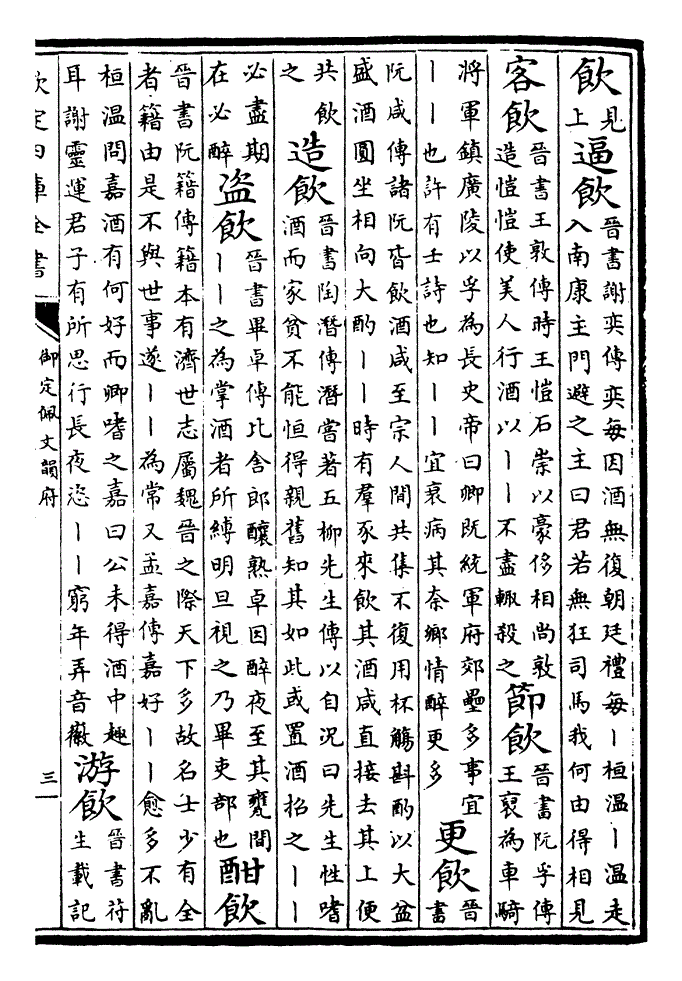 飲見上逼飲晉書謝奕傳奕每因酒無復朝廷禮每｜桓溫｜溫走
入南康主門避之主曰君若無狂司馬我何由得相見
客飲晉書王敦傳時王愷石崇以豪侈相尚敦
造愷愷使美人行酒以｜｜不盡輙殺之節飲晉書阮孚傳
王裒為車騎
將軍鎮廣陵以孚為長史帝曰卿既統軍府郊壘多事宜
｜｜也許有壬詩也知｜｜宜衰病其奈鄉情醉更多更飲晉
書
阮咸傳諸阮皆飲酒咸至宗人間共集不復用杯觴斟酌以大盆
盛酒圓坐相向大酌｜｜時有羣豕來飲其酒咸直接去其上便
共飲
之造飲晉書陶潛傳潛嘗著五柳先生傳以自況曰先生性嗜
酒而家貧不能恒得親舊知其如此或置酒招之｜｜
必盡期
在必醉盜飲晉書畢卓傳比舍郎釀熟卓因醉夜至其甕間
｜｜之為掌酒者所縛明旦視之乃畢吏部也酣飲
晉書阮籍傳籍本有濟世志屬魏晉之際天下多故名士少有全
者籍由是不與世事遂｜｜為常又孟嘉傳嘉好｜｜愈多不亂
桓溫問嘉酒有何好而卿嗜之嘉曰公未得酒中趣
耳謝靈運君子有所思行長夜恣｜｜窮年弄音徽游飲晉書苻
生載記
欽定四庫全書
御定佩文韻府
三